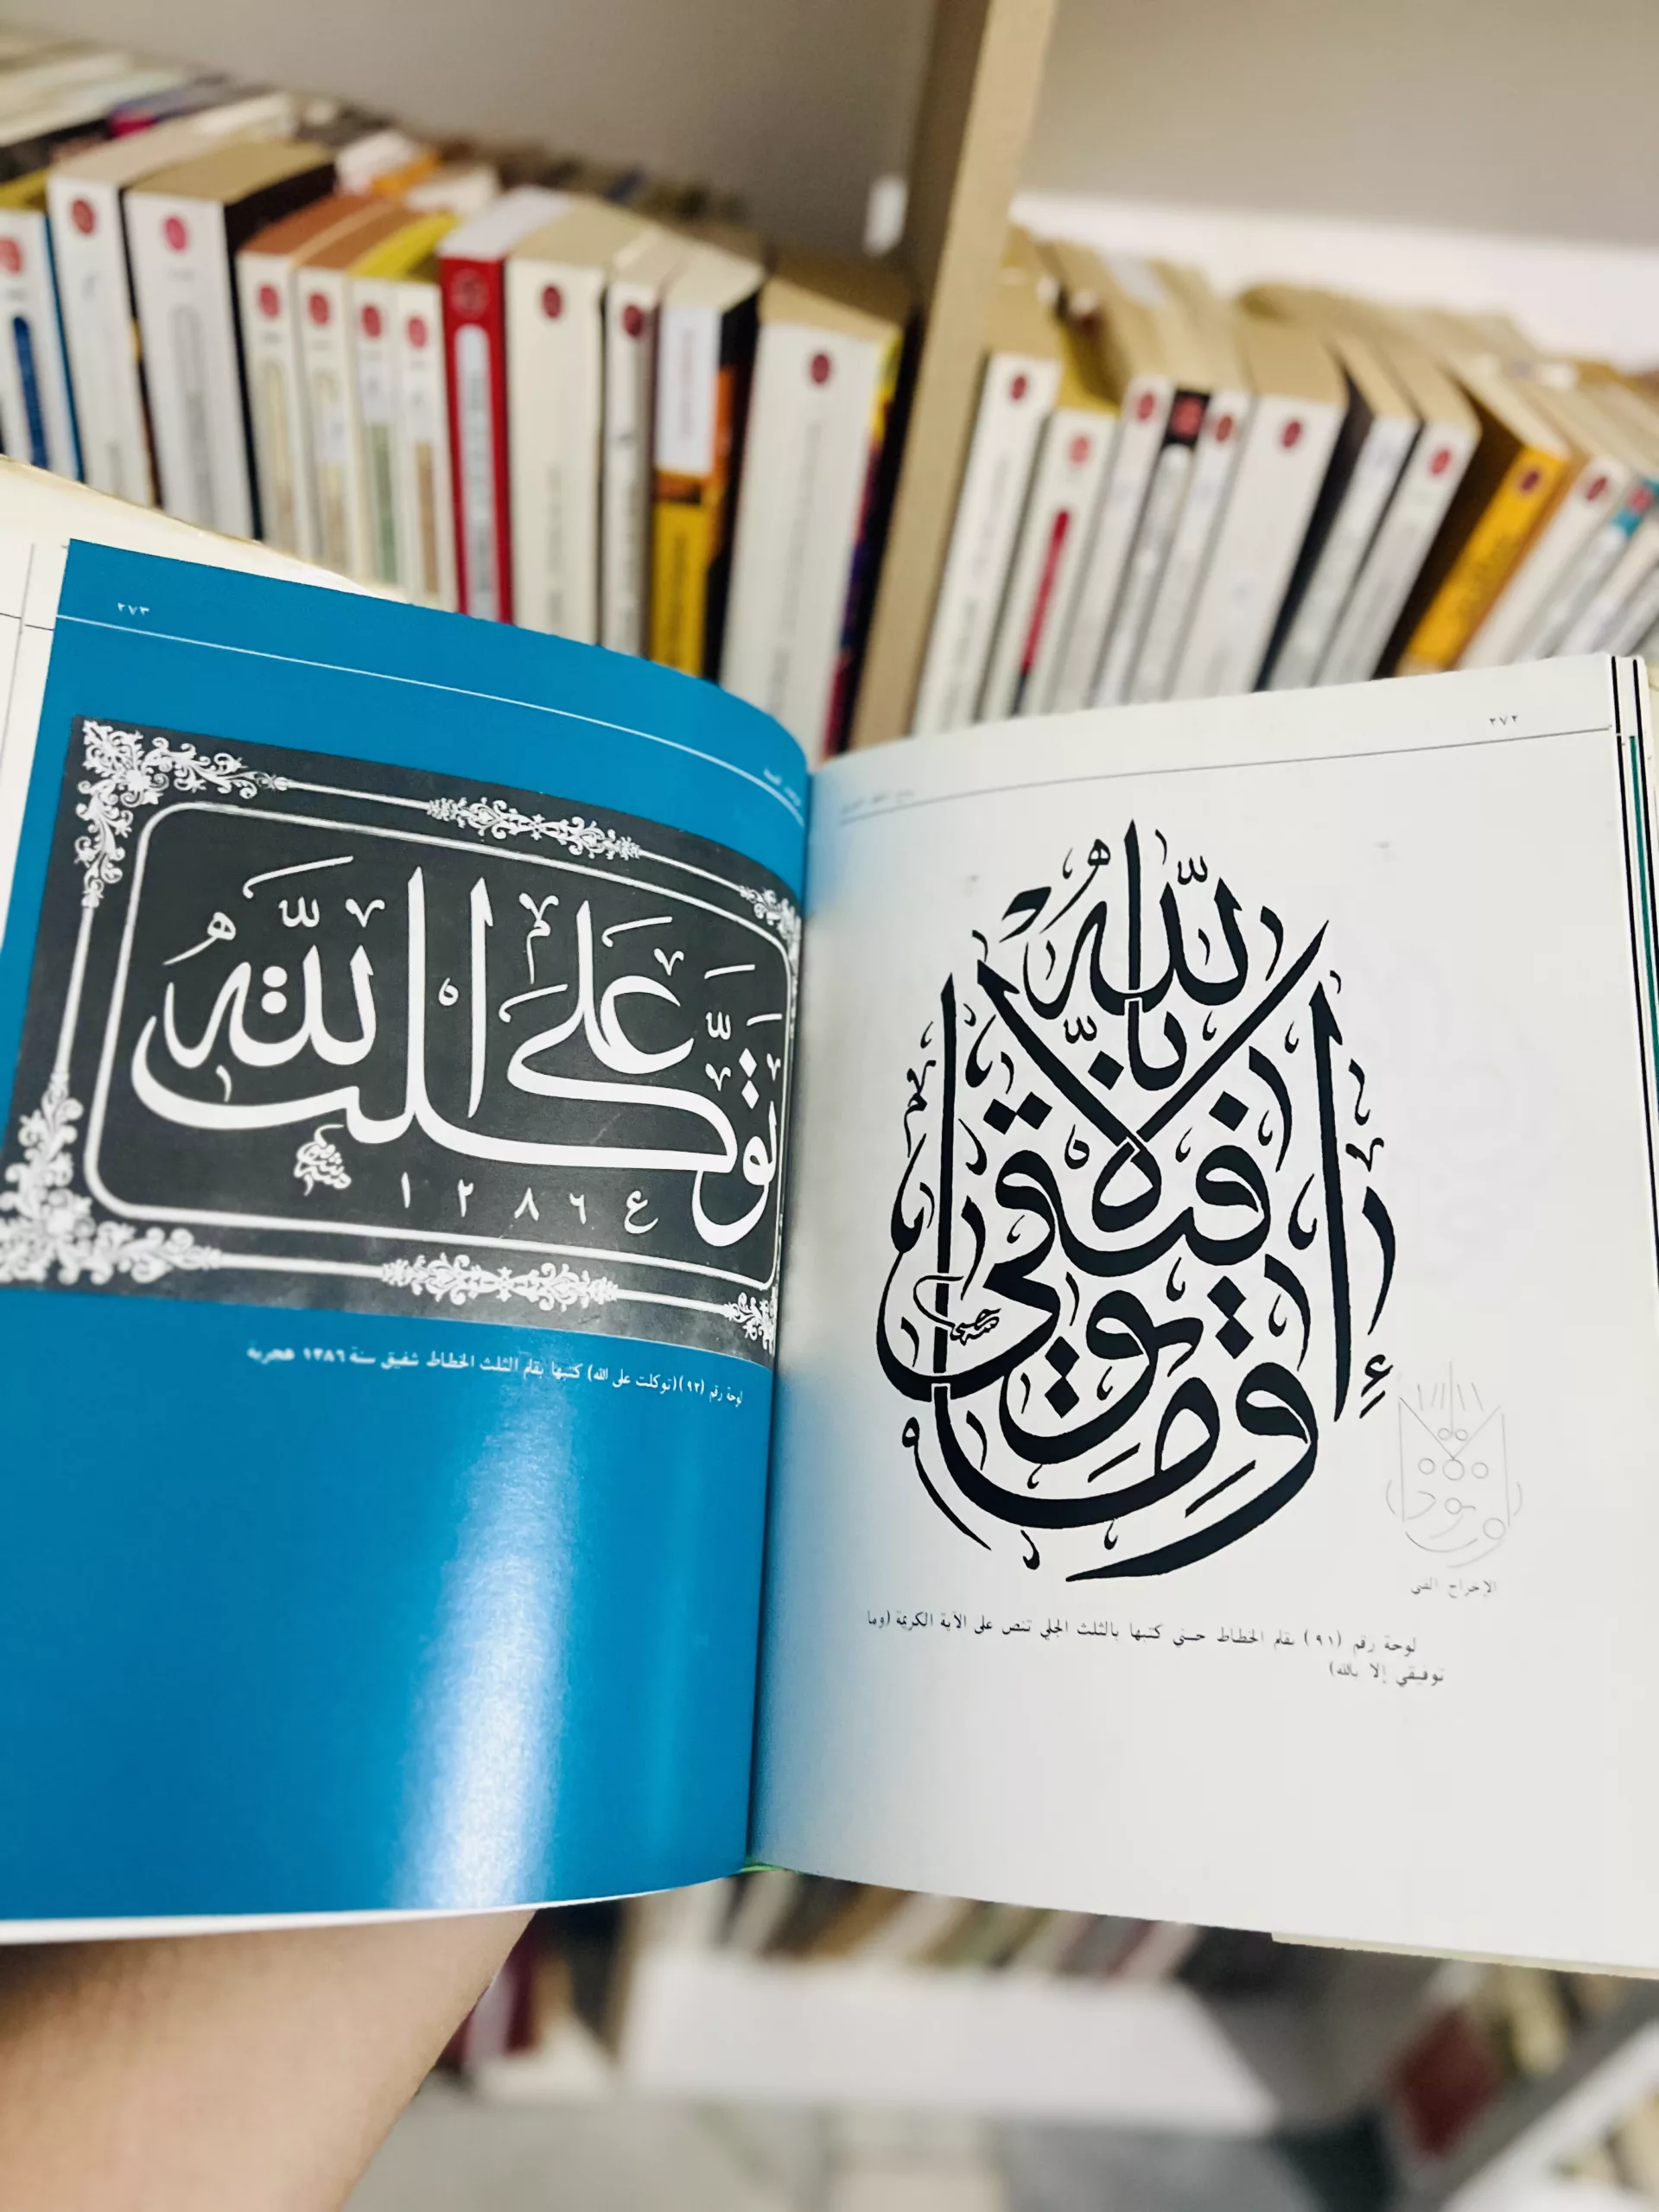 ٢٧٢
وما توفيقي إلا بالله
الإخراج الفني
لوحة رقم (٩١) بقلم الخطاط حسني كتبها بالثلث الجلي تنص على الآية الكريمة (وما
توفيقي إلا بالله)
٢٧٣
توكلت على الله
١٢٨٦
لوحة رقم (٩٢) (توكلت على الله) كتبها بقلم الثلث الخطاط شفيق سنة ١٢٨٦ هجرية